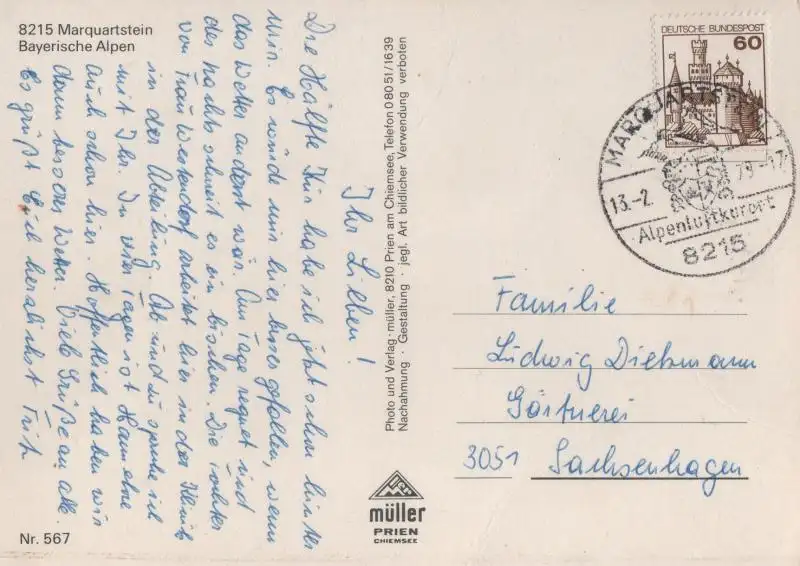 8215 Marquartstein
Bayerische Alpen
Ihr Lieben!
Die Hälfte Kur habe ich jetzt schon hinter
mir. Es würde mir hier besser gefallen, wenn
das Wetter anders war. Am Tage regnet und
des nachts schneit es ein bischen. Die Tochter
von Frau Westendorf arbeitet hier in der Klinik
in der Abteilung. Ab und zu spreche ich
mit Ihr. In vier Tagen ist Hannelore
auch schon hier. Hoffentlich haben wir
dann besseres Wetter. Viele Grüße an alle.
Es grüßt Euch herzlichst
Nr. 567
Photo und Verlag · müller, 8210 Prien am Chiemsee, Telefon 08051/1639
Nachahmung · Gestaltung · jegl. Art bildlicher Verwendung verboten
müller
PRIEN
CHIEMSEE
DEUTSCHE BUNDESPOST
60
MARQUARTSTEIN
13.-2. 79.-17
Alpenluftkurort
8215
Familie
Ludwig Diekmann
Gärtnerei
3051 Sachsenhagen